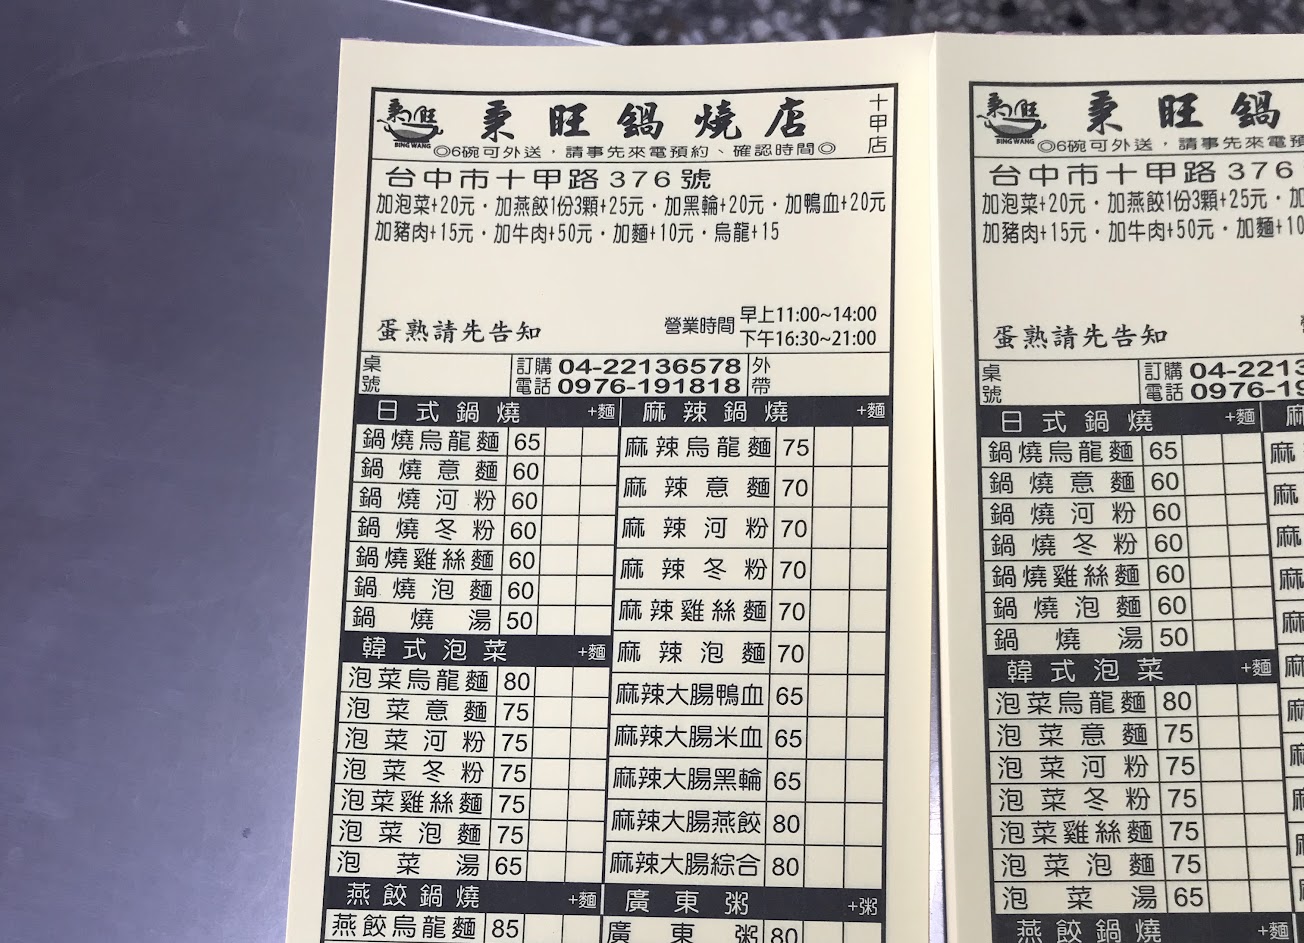 秉旺 秉旺鍋燒店 十甲店
BING WANG ◎6碗可外送，請事先來電預約、確認時間◎
台中市十甲路376號
加泡菜+20元・加燕餃1份3顆+25元・加黑輪+20元・加鴨血+20元
加豬肉+15元・加牛肉+50元・加麵+10元・烏龍+15
營業時間 早上11:00~14:00
下午16:30~21:00
蛋熟請先告知
桌號 訂購電話 04-22136578 外帶
0976-191818
日式鍋燒 +麵
鍋燒烏龍麵 65
鍋燒意麵 60
鍋燒河粉 60
鍋燒冬粉 60
鍋燒雞絲麵 60
鍋燒泡麵 60
鍋燒湯 50
韓式泡菜 +麵
泡菜烏龍麵 80
泡菜意麵 75
泡菜河粉 75
泡菜冬粉 75
泡菜雞絲麵 75
泡菜泡麵 75
泡菜湯 65
燕餃鍋燒 +麵
燕餃烏龍麵 85
麻辣鍋燒 +麵
麻辣烏龍麵 75
麻辣意麵 70
麻辣河粉 70
麻辣冬粉 70
麻辣雞絲麵 70
麻辣泡麵 70
麻辣大腸鴨血 65
麻辣大腸米血 65
麻辣大腸黑輪 65
麻辣大腸燕餃 80
麻辣大腸綜合 80
廣東粥 +粥
廣東粥 80
秉旺 秉旺鍋
BING WANG ◎6碗可外送，請事先來電預
台中市十甲路376
加泡菜+20元・加燕餃1份3顆+25元・加
加豬肉+15元・加牛肉+50元・加麵+10
蛋熟請先告知
桌號 訂購電話 04-2213
0976-19
日式鍋燒 +麵
鍋燒烏龍麵 65
鍋燒意麵 60
鍋燒河粉 60
鍋燒冬粉 60
鍋燒雞絲麵 60
鍋燒泡麵 60
鍋燒湯 50
韓式泡菜 +麵
泡菜烏龍麵 80
泡菜意麵 75
泡菜河粉 75
泡菜冬粉 75
泡菜雞絲麵 75
泡菜泡麵 75
泡菜湯 65
燕餃鍋燒 +麵
麻
麻
麻
麻
麻
麻
麻